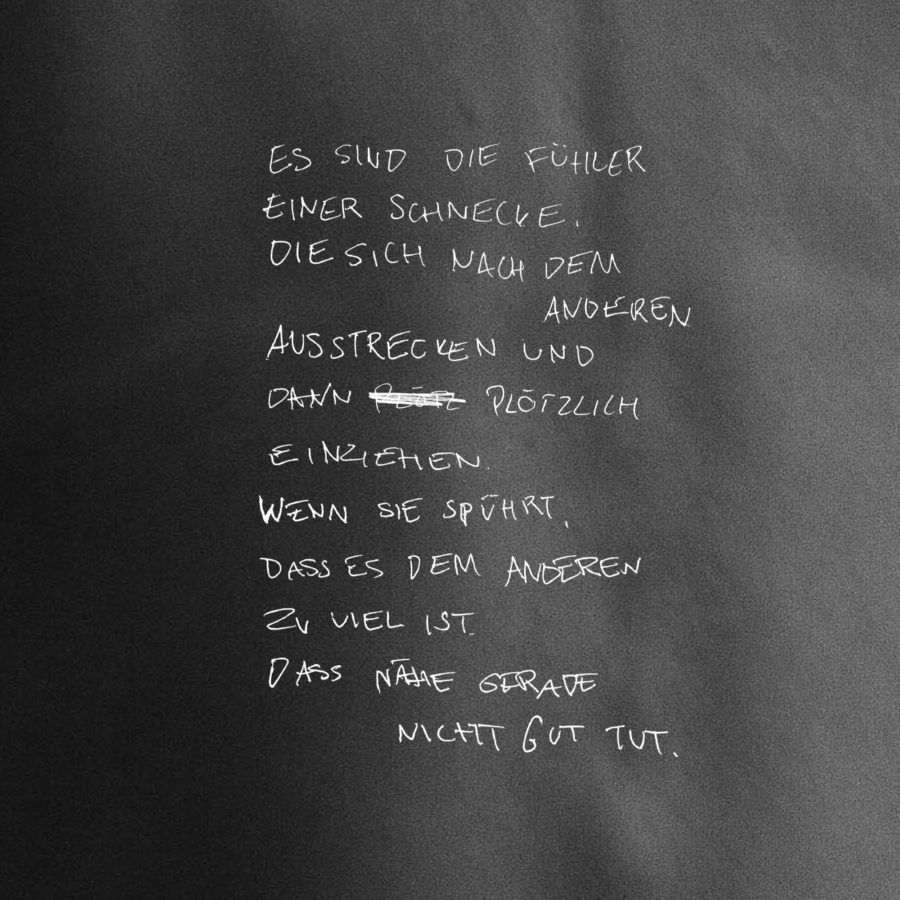 ES SIND DIE FÜHLER
EINER SCHNECKE.
DIE SICH NACH DEM
ANDEREN
AUSSTRECKEN UND
DANN PLÖTZ PLÖTZLICH
EINZIEHEN.
WENN SIE SPÜHRT,
DASS ES DEM ANDEREN
ZU VIEL IST.
DASS NÄHE GERADE
NICHT GUT TUT.